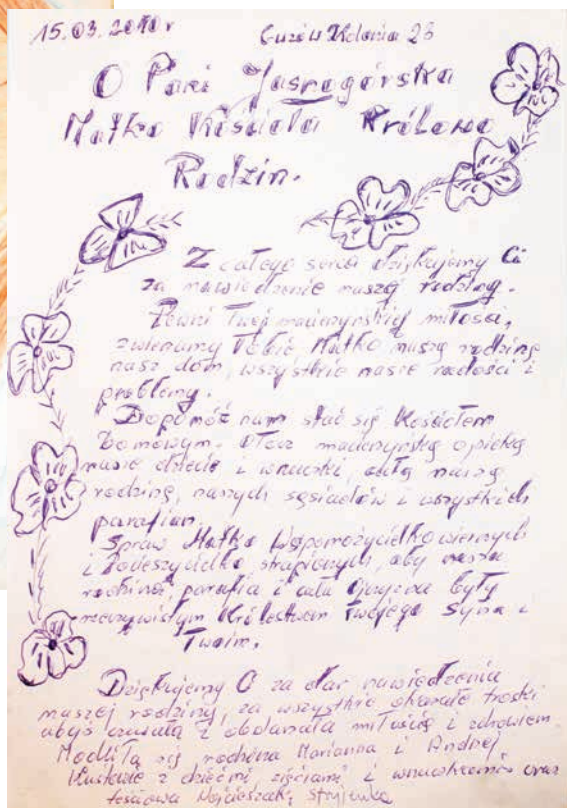 15.03.2010r Guzów Kolonia 23
O Pani Jasnogórska
Matko Kościoła Królowo
Rodzin.
Z całego serca dziękujemy Ci
za nawiedzenie naszej rodziny.
Pewni Twej macierzyńskiej miłości,
zwierzamy Tobie, Matko naszą rodzinę
nasz dom, wszystkie nasze radości i
problemy.
Dopomóż nam stać się Kościołem
Domowym. Otocz macierzyńską opieką
nasze dzieci i wnuczki, całą naszą
rodzinę, naszych sąsiadów i wszystkich
parafian.
Spraw Matko Wspomożycielko wiernych
i Pocieszycielko strapionych, aby nasza
rodzina, parafia i cała Ojczyzna były
rzeczywistym Królestwem Twojego Syna i
Twoim.
Dziękujemy Ci za dar nawiedzenia
naszej rodziny, za wszystkie okazałe troski
abyś czuwała i obdarzała miłością i zdrowiem.
Modliła się rodzina Marianna i Andrzej
z dziećmi, zięciami, i wnuczkami oraz
teściowa